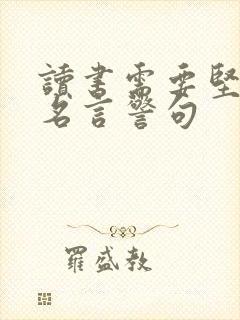 讀書需要堅
名言警句
羅盛教